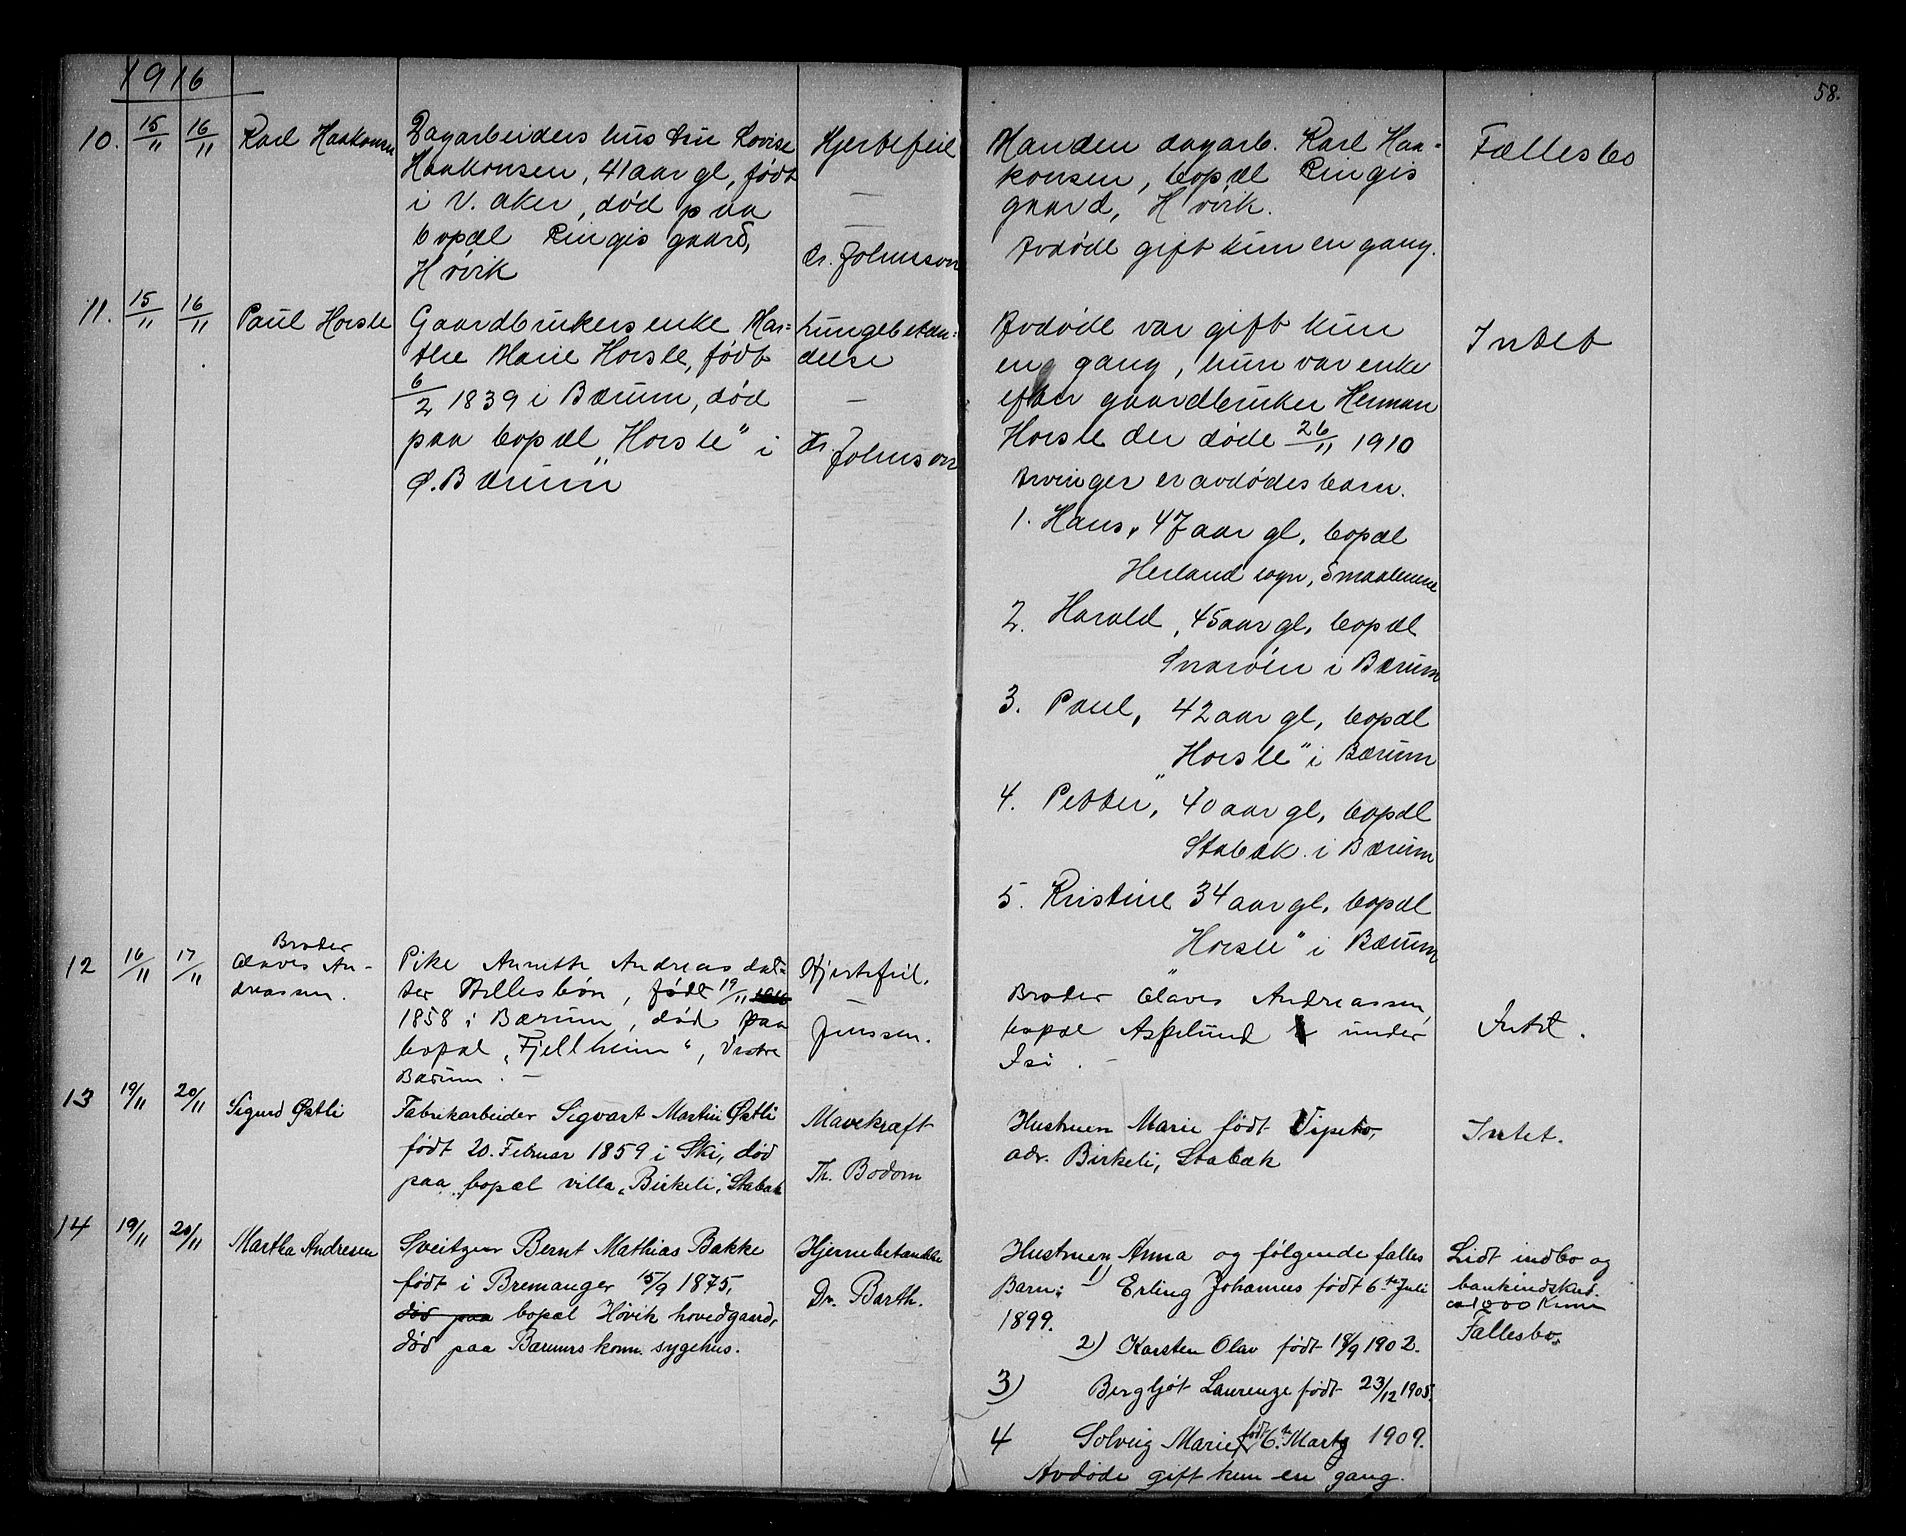 1916
58.
10. 15/11 16/11 Karl Haakonsen
Dagarbeiders hustru Lovise
Haakonsen, 41 aar gl, født
i V. aker, død paa
bopæl Ringis gaard,
Høvik
Hjertefeil
—
—
Dr. Johnson
Manden dagarb. Karl Haa-
konsen, bopæl Ringis
gaard, Høvik.
Avdøde gift kun en gang.
Fællesbo
11. 15/11 16/11 Paul Horsle
Gaardbrukersenke Mar-
the Marie Horsle, født
6/2 1839 i Bærum, død
paa bopæl „Horsle" i
Ø. Bærum
Lungebetæn-
delse
—
Dr. Johnson
Avdøde var gift kun
en gang, hun var enke
efter gaardbruker Herman
Horsle der døde 26/11 1910
Arvinger er avdødes barn.
1. Hans, 47 aar gl, bopæl
Herland sogn, Smaalenene
2. Harald, 45 aar gl, bopæl
Snarøen i Bærum
3. Paul, 42 aar gl, bopæl
„Horsle" i Bærum
4. Petter, 40 aar gl, bopæl
Stabæk i Bærum
5. Kristine 34 aar gl, bopæl
„Horsle" i Bærum
Intet
12 16/11 17/11 Broder
Olaves An-
dreassen.
Pike Annethe Andreasdat-
ter, født 19/11
1858 i Bærum, død paa
bopæl „Fjellheim", Vestre
Bærum. —
Hjertefeil.
Jenssen.
Broder Olaves Andreassen,
bopæl Aspelund under
Isi.
Intet.
13 19/11 20/11 Sigurd Østli
Fabrikarbeider Sigvart Martin Østli
født 20. Februar 1859 i Ski, død
paa bopæl villa „Birkeli", Stabæk
Mavekræft
Th. Bodom
Hustruen Marie født
adr. Birkeli, Stabæk
Intet.
14 19/11 20/11 Martha Andresen
Sveitzer Bernt Mathias Bakke
født i Bremanger 15/9 1875,
død paa bopæl Høvik hovedgaard,
død paa Bærums komm. sygehus.
Hjernebetændelse
Dr. Barth.
Hustruen Anna og følgende fælles
Barn: 1) Erling Johannes født 6te Juli
1899.
2) Karsten Olav født 18/9 1902.
3) Bergljót Laurenze født 23/12 1905.
4 Solveig Marie født 6te Marts 1909.
Avdøde gift kun en gang.
Lidt indbo og
bankindskud.
ca 1000 Kroner
Fællesbo.